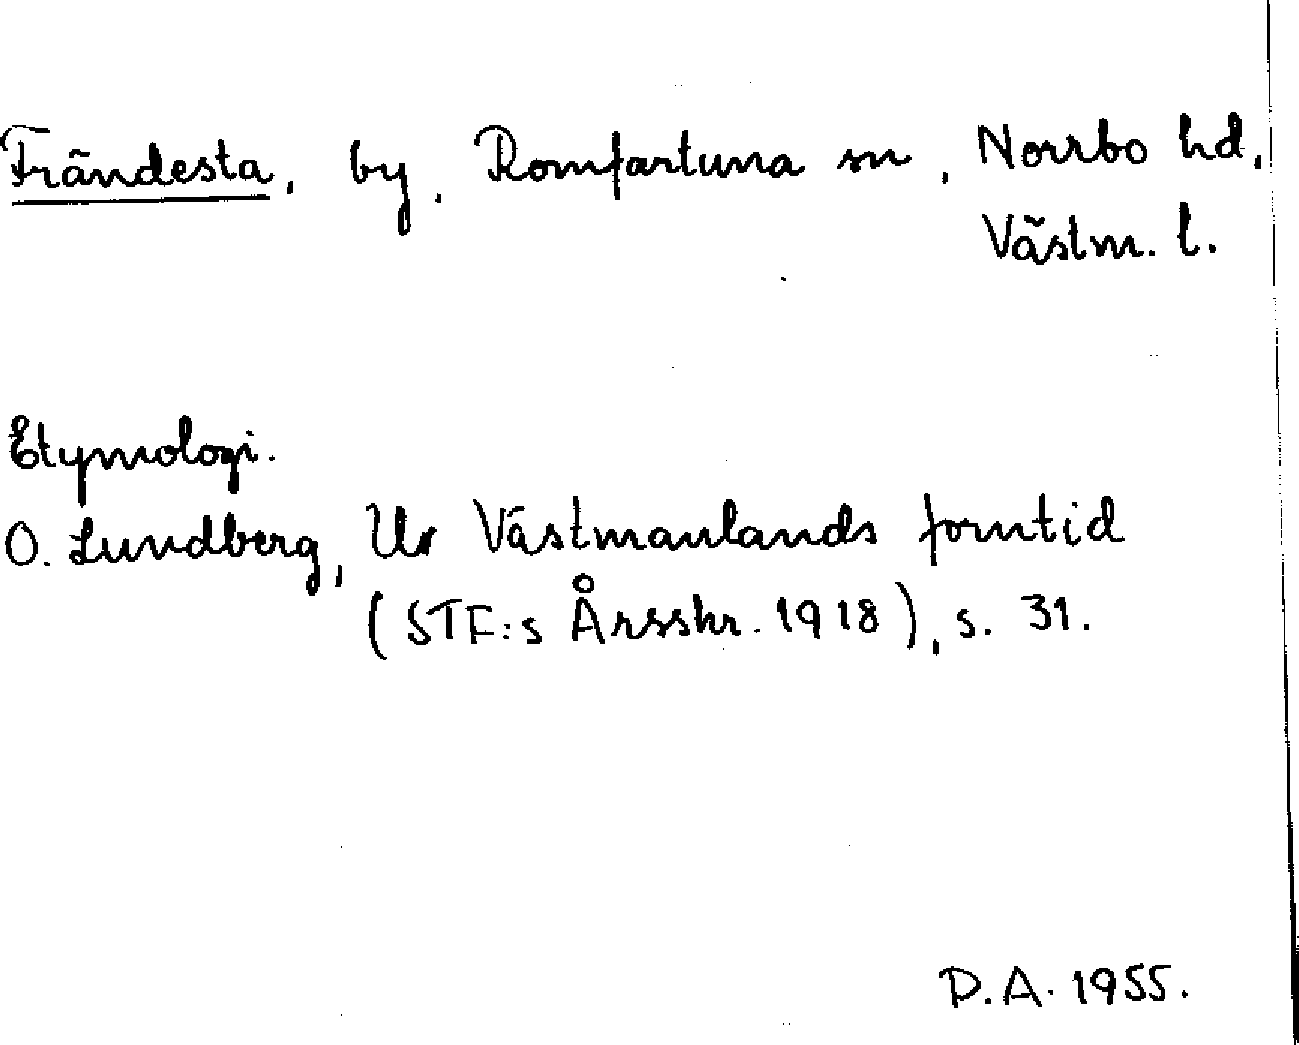 Frändesta, by, Romfartuna sn, Norrbo hd,
Västm. l.
Etymologi.
O. Lundberg, Ur Västmanlands forntid
(STF:s Årsskr. 1918), s. 31.
D.A. 1955.